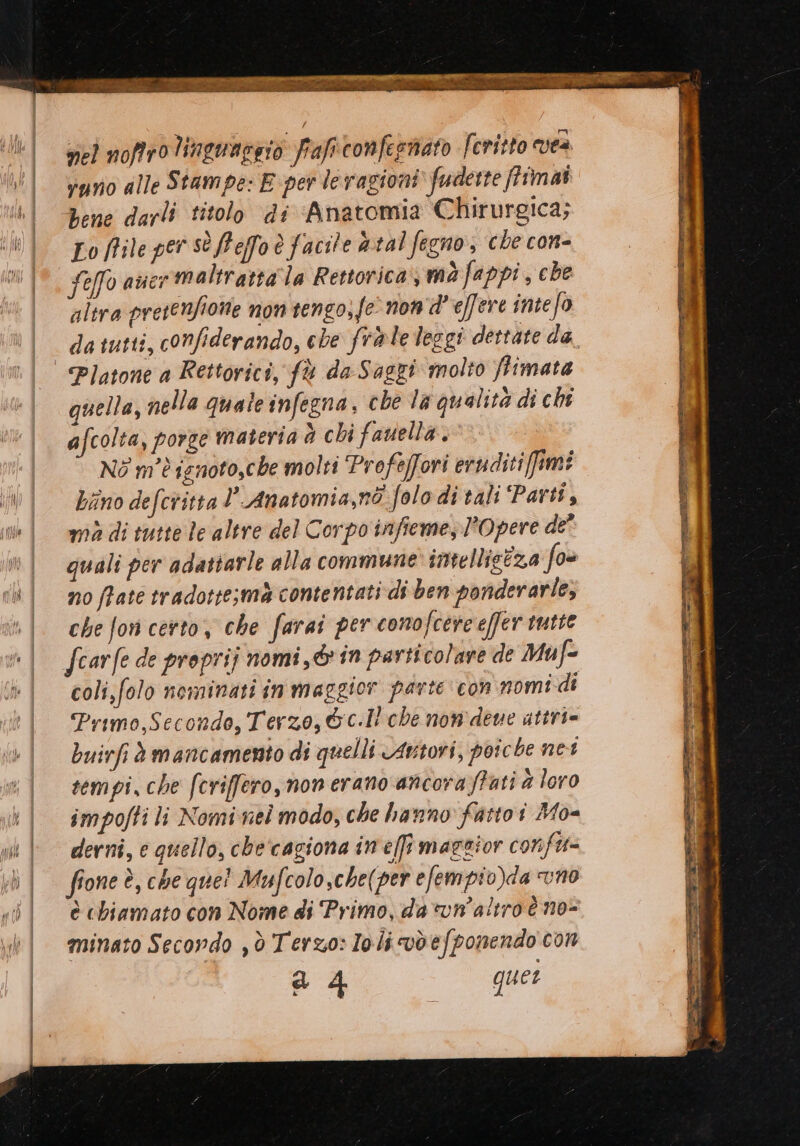 nel noſtro linguaggio ſiaſi conſegnato ſcritto ve=
runo alle Stampe: E per le ragioni ſudette ſtimai
bene darli titolo di Anatomia Chirurgica;
Lo ſtile per sè ſteſſo è facile à tal ſegno, che con=
feſſo auer maltratta la Rettorica; mà ſappi, che
altra pretenſione non tengo, ſe non d'eſſere inteſo
da tutti, conſiderando, che frà le leggi dettate da
Platone a Rettorici, fù da Saggi molto ſtimata
quella, nella quale inſegna, che la qualità di chi
aſcolta, porge materia à chi fauella.
Nō m'è ignoto, che molti Profeſſori eruditiſſimi
hāno deſcritta l'Anatomia, nō ſolo di tali Parti,
mà di tutte le altre del Corpo inſieme, l'Opere de'
quali per adattarle alla commune intelligēza ſo=
no ſtate tradotte; mà contentati di ben ponderarle,
che ſon certo, che farai per conoſcere eſſer tutte
ſcarſe de proprij nomi, & in particolare de Muſ=
coli, ſolo nominati in maggior parte con nomi di
Primo, Secondo, Terzo, &c. Il che non deue attri=
buirſi à mancamento di quelli Autori, poiche nei
tempi, che ſcriſſero, non erano ancora ſtati à loro
impoſti li Nomi nel modo, che hanno fatto i Mo=
derni, e quello, che cagiona in eſſi maggior confu=
ſione è, che quel Muſcolo, che (per eſempio) da vno
è chiamato con Nome di Primo, da vn'altro è no=
minato Secondo, ò Terzo: Io li vò eſponendo con
a 4 quei